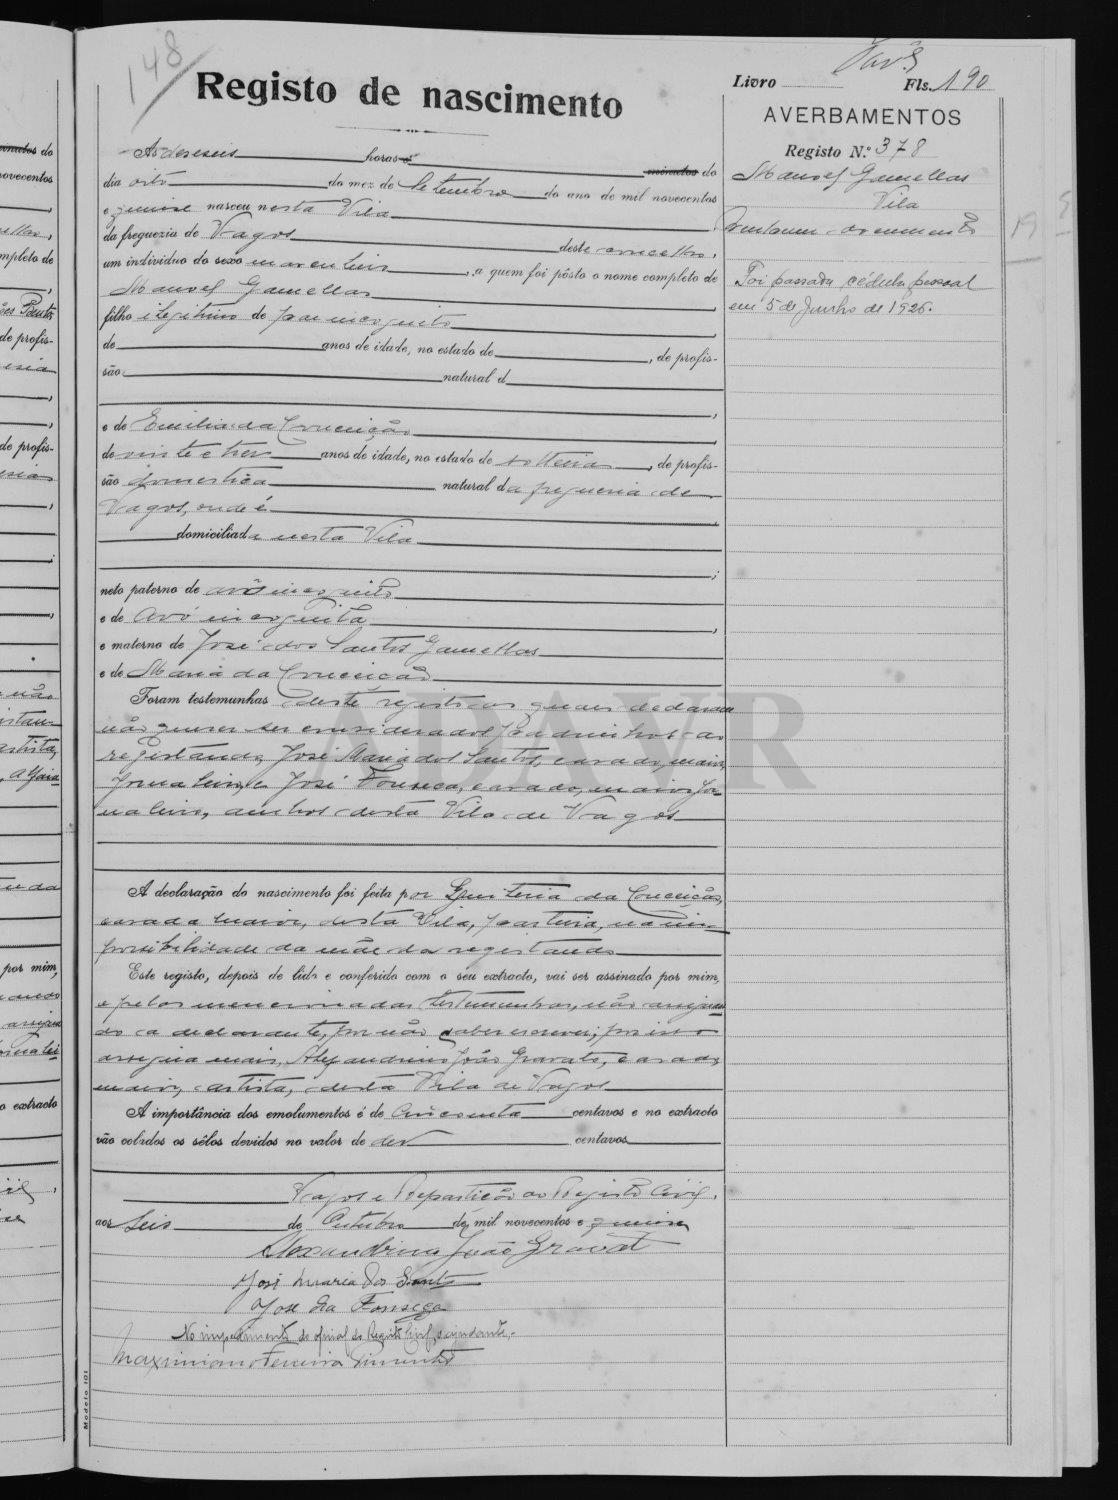 148
Registo de nascimento
Ás dezeseis horas e minutos do
dia oito do mez de Setembro do ano de mil novecentos
e quinse nasceu nesta Vila
da freguezia de Vagos deste concelho,
um individuo do sexo masculino, a quem foi pôsto o nome completo de
Manoel Gamellas
filho ilegitimo de pae incognito
de anos de idade, no estado de , de profis-
são natural d
e de Emilia da Conceição
de vinte e tres anos de idade, no estado de solteira, de profis-
são domestica natural da freguesia de
Vagos, onde é
domiciliada nesta Vila
neto paterno de avô incognito
e de avó incognita
e materno de José dos Santos Gamellas
e de Maria da Conceição
Foram testemunhas deste registo os quaes declararam
não querer ser considerados padrinhos do
registando, José Maria dos Santos, casado, maior,
jornaleiro, e José Fonseca, casado, maior, jor-
naleiro, ambos desta Vila de Vagos
A declaração do nascimento foi feita por Quiteria da Conceição,
casada maior, desta Vila, parteira, na im-
possibilidade da mãe do registando
Este registo, depois de lido e conferido com o seu extracto, vai ser assinado por mim,
e pelas mencionadas testemunhas, não assignan-
do a declarante, por não saber escrever; por isso
assigna mais, Alexandrino João Gravato, casado,
maior, artista, desta Vila de Vagos
A importância dos emolumentos é de cincoenta centavos e no extracto
vão colados os sêlos devidos no valor de dez centavos
Vagos e Repartição do Registo Civil,
aos seis de Outubro de mil novecentos e quinse
Alexandrino João Gravat
José Maria dos Santos
José da Fonseca
No impedimento do oficial do Registo Civil, o ajudante.
Maximiano Ferreira Pimentel
Modelo 101
Livro Fls. 190
AVERBAMENTOS
Registo N.º 378
Manoel Gamellas
Vila
Foi passada cédula pessoal
em 5 de Junho de 1926.
19
ADAVR